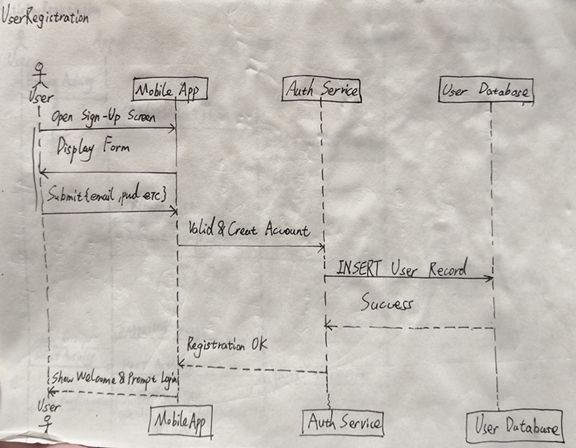 UserRegistration
User
Mobile App
Auth Service
User Database
Open Sign-Up Screen
Display Form
Submit{email,pwd etc}
Valid & Creat Account
INSERT User Record
Success
Registration OK
Show Welcome & Prompt Login
User
MobileApp
Auth Service
User Database